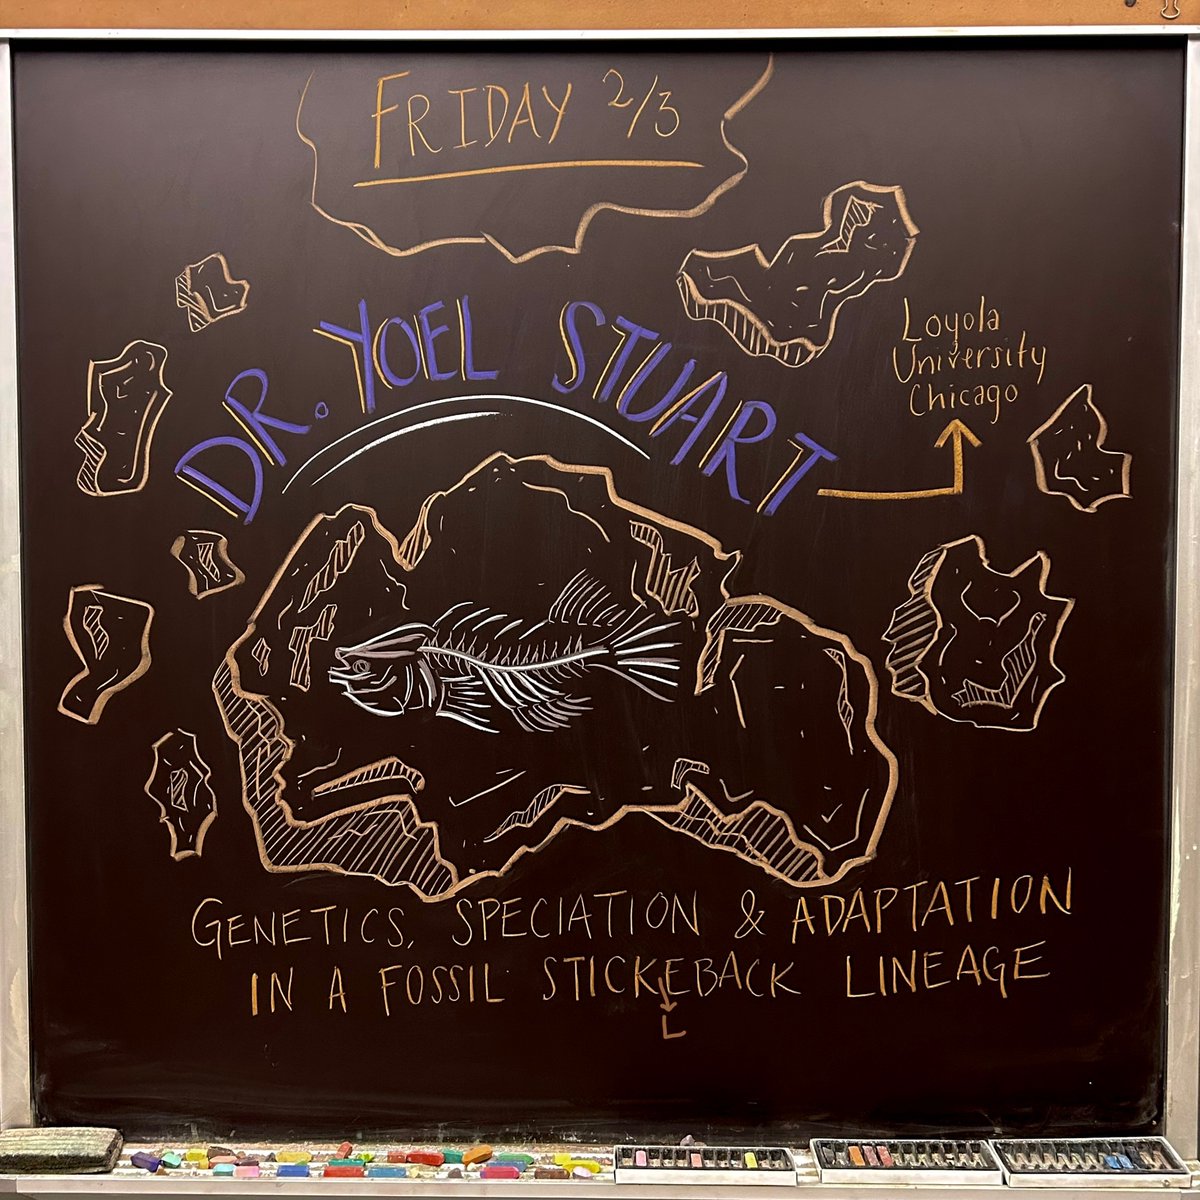 FRIDAY 2/3
DR. YOEL STUART
Loyola
University
Chicago
GENETICS, SPECIATION & ADAPTATION
IN A FOSSIL STICKEBACK LINEAGE
L